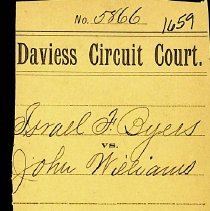 No. 5866
1659
Daviess Circuit Court.
Israel F. Byers
vs.
John Williams